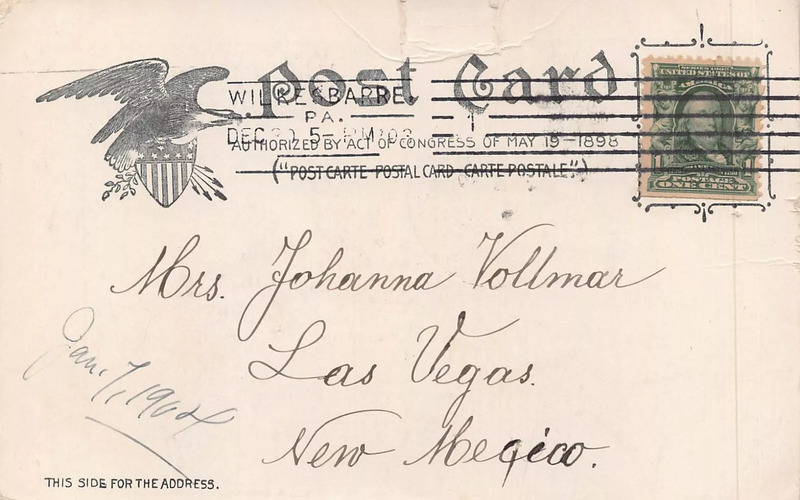 Post Card
WILKESBARRE
PA.
DEC 5-PM
1
AUTHORIZED BY ACT OF CONGRESS OF MAY 19-1898
("POST CARTE-POSTAL CARD-CARTE POSTALE")
SERIES 1902
UNITED STATES OF
AMERICA
1 1
POSTAGE
ONE CENT
Mrs. Johanna Vollmar
Las Vegas.
New Mexico.
Jan. 7, 1904
THIS SIDE FOR THE ADDRESS.